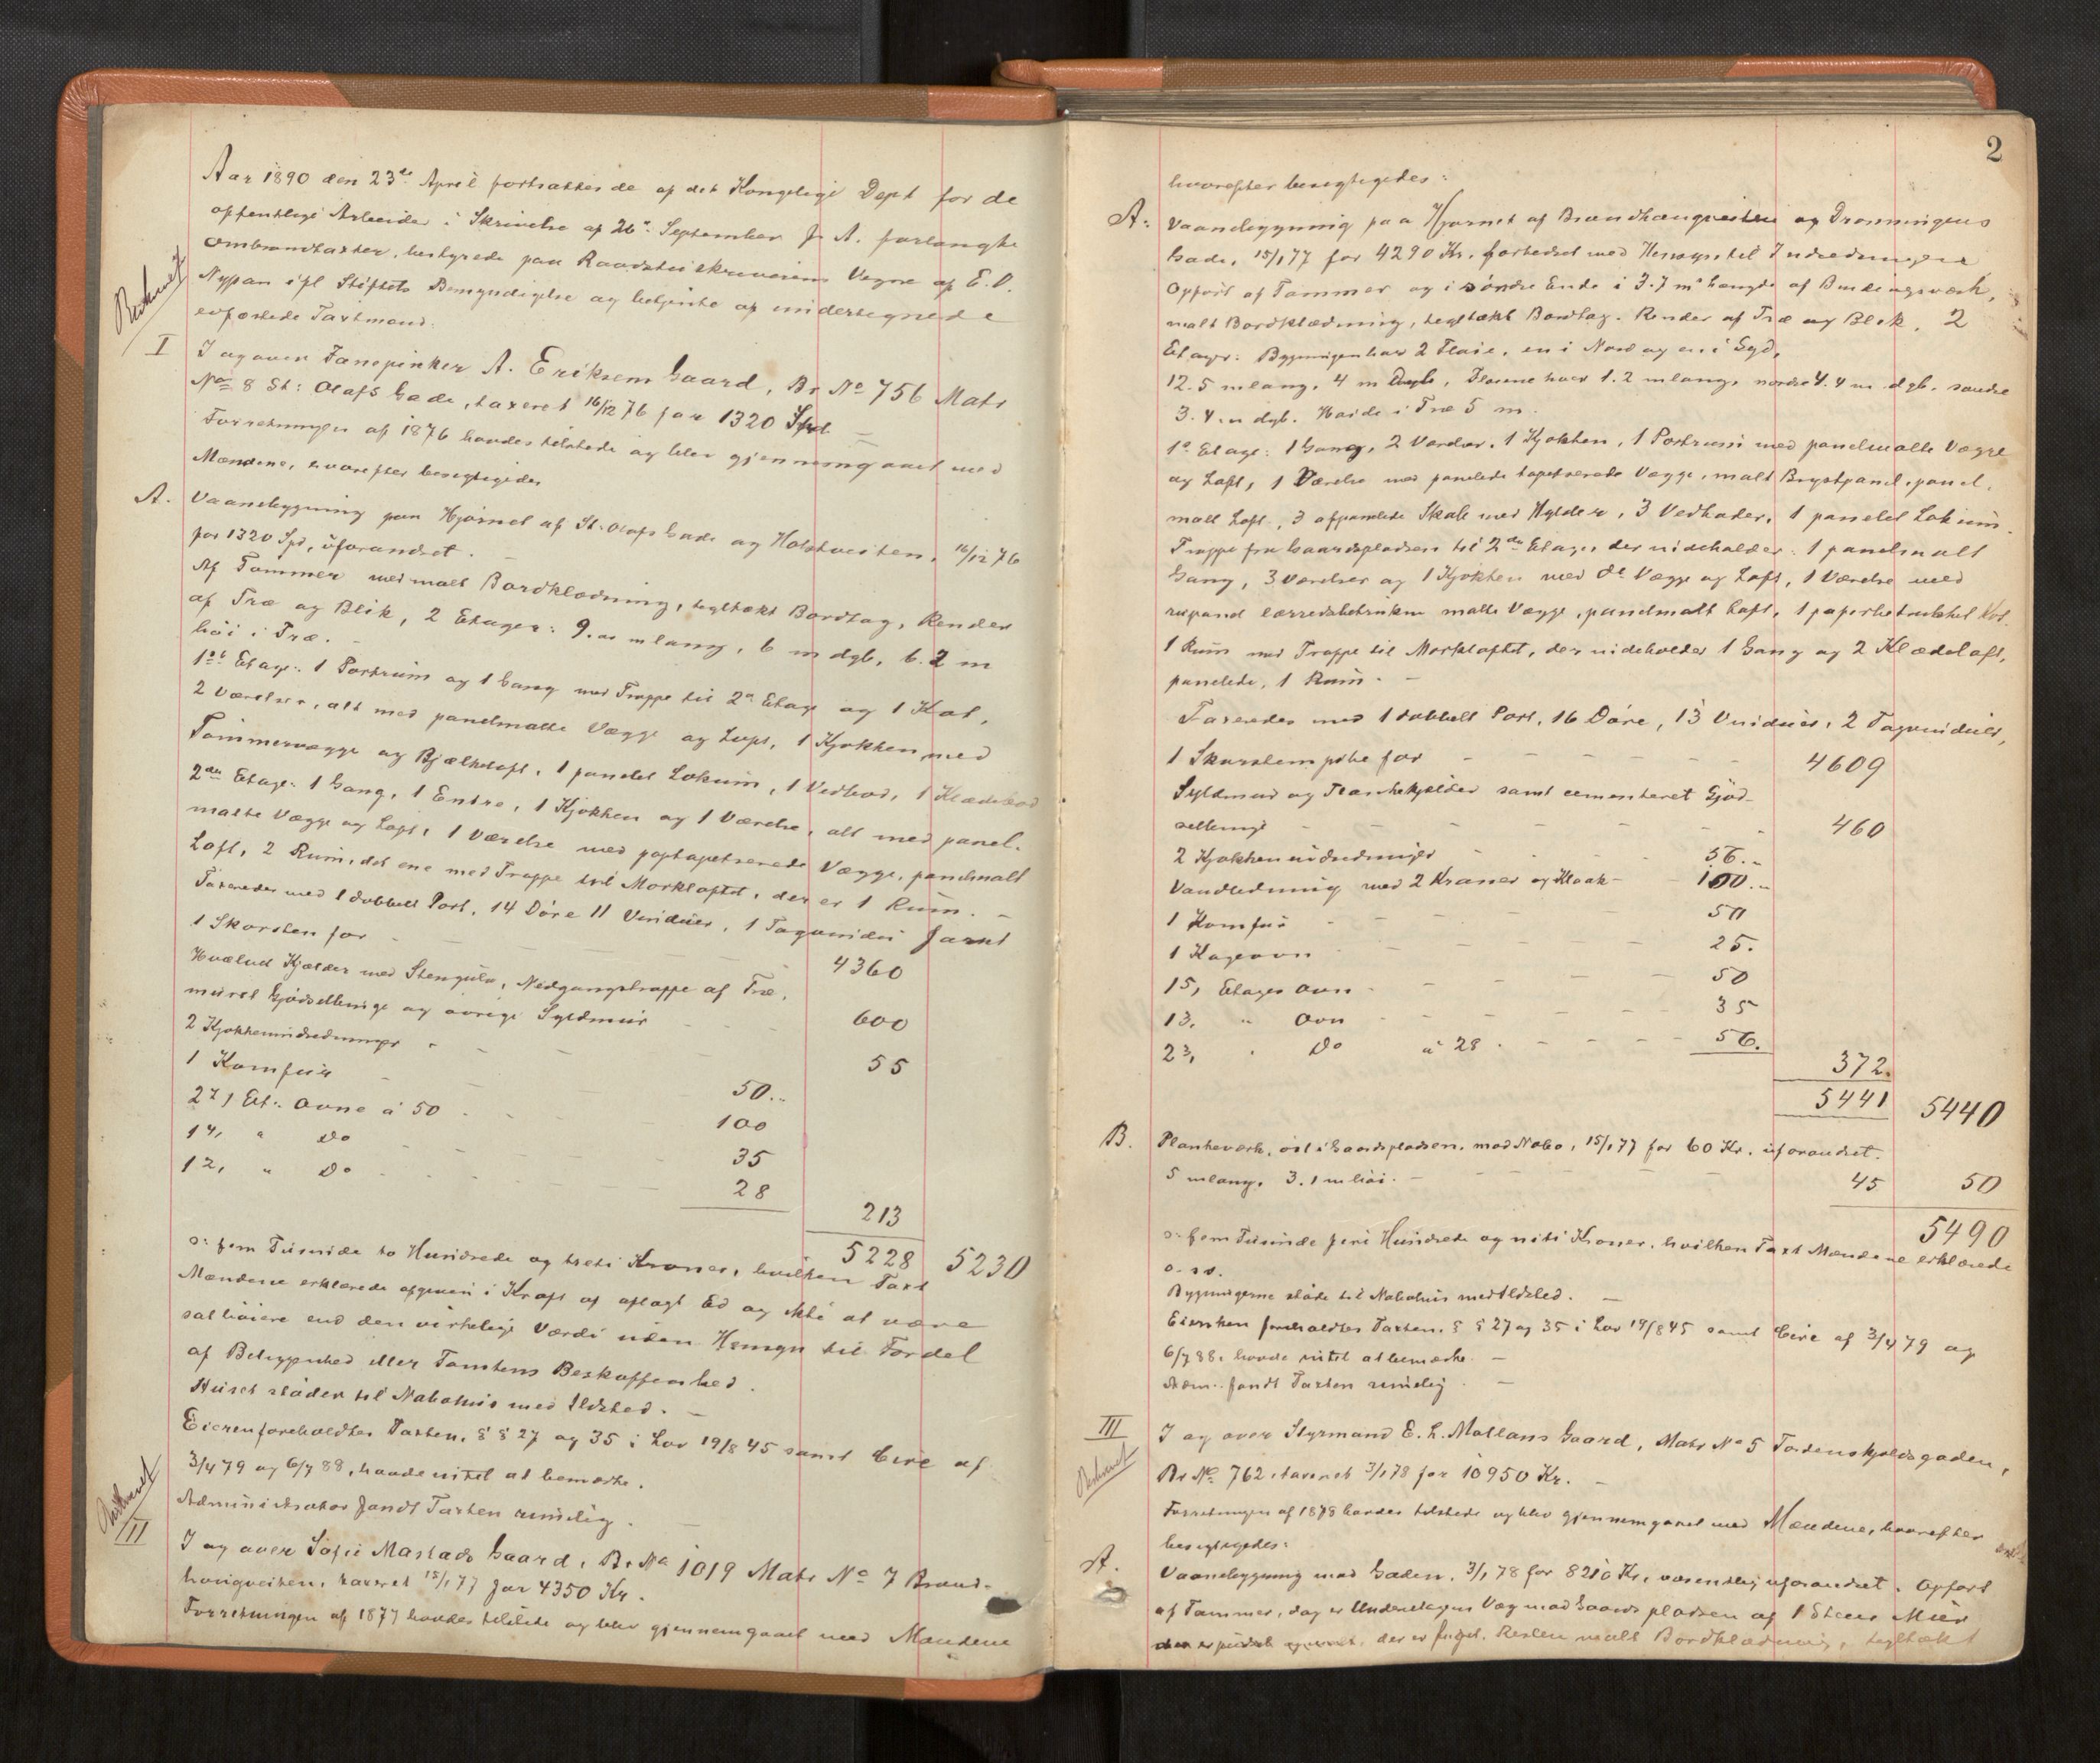 Aar 1890 den 23de April fortsattes de af det Kongelige Dept for de
offentlige Arbeider i Skrivelse af 26de September f. A. forlangte
Ombrandtaxter, bestyrede paa Raadstueskriverens Vegne af E. O.
Nypan ifl Stiftets Bemyndigelse og betjente af undertegnede
edfæstede Taxtmænd.
I I og over Fanejunker A. Eriksens Gaard, Br No 756 Matr
No 8 St: Olafs Gade, taxeret 16/12 76 for 1320 Spd.
Forretningen af 1876 havdes tilstede og blev gjennemgaaet med
Mændene, hvorefter besigtigedes
A. Vaanebygning paa Hjørnet af St. Olafs Gade og Holstveiten, 16/12 76
for 1320 Spd, uforandret.
Af Tømmer med malt Bordklædning, tegltækt Bordtag, Render
af Træ og Blik, 2 Etager: 9. m lang, 6 m dyb, 6.2 m
høi i Træ.
1ste Etage: 1 Portrum og 1 Gang med Trappe til 2n Etage og 1 Kot,
2 Værelser, alt med panelmalte Vægge og Loft, 1 Kjøkken med
Tømmervægge og Bjælkeloft, 1 panelet Lokum, 1 Vedbod, 1 Klædebod
2den Etage: 1 Gang, 1 Entre, 1 Kjøkken og 1 Værelse, alt med panel-
malte Vægge og Loft, 1 Værelse med paptapetserede Vægge, panelmalt
Loft, 2 Rum, det ene med Trappe til Mørkloftet, der er 1 Rum.
Taxeredes med 1 dobbelt Port, 14 Døre 11 Vinduer, 1 Tagvindu samt
1 Skorsten for 4360
Hvælvet Kjælder med Stengulv, Nedgangstrappe af Træ,
muret Gjødselbinge og øvrige Syldmur 600
2 Kjøkkenindredninger 55
1 Komfur 50..
2 7, Et: Ovne à 50 100
1 4, " Do 35
1 2, " Do 28
213
5228 5230
o: fem Tusinde to Hundrede og treti Kroner, hvilken Taxt
Mændene erklærede afgiven i Kraft af aflagt Ed og ikke at være
sat høiere end den virkelige Værdi uden Hensyn til Fordel
af Beliggenhed eller Tomtens Beskaffenhed.
Huset støder til Nabohus med Ildsted.
Eieren foreholdtes Taxten, § § 27 og 35 i Lov 19/8 45 samt Circ af
3/4 79 og 6/7 88, havde intet at bemærke.
Administrator fandt Taxten rimelig.
II I og over Sofie Mastads Gaard, Br No 1019 Matr No 7 Brand-
haugveiten, taxeret 15/1 77 for 4350 Kr.
Forretningen af 1877 havdes tilstede og blev gjennemgaaet med Mændene
2
hvorefter besigtigedes:
A: Vaanebygning paa Hjørnet af Brandhaugveiten og Dronningens
Gade, 15/1 77 for 4290 Kr. forbedret med Hensyn til Indredningen
Opført af Tømmer og i søndre Ende i 3.7 m's Længde af Bindingsværk,
malt Bordklædning, tegltækt Bordtag. Render af Træ og Blik, 2
Etager: Bygningen har 2 Fløie, en i Nord og en i Syd,
12.5 m lang, 4 m dyb, Fløiene hver 1.2 m lang, nordre 4.4 m dyb, søndre
3.4 m dyb. Høide i Træ 5 m.
1e Etage: 1 Gang, 2 Værelser, 1 Kjøkken, 1 Portrum med panelmalte Vægge
og Loft, 1 Værelse med panelede tapetserede Vægge, malt Brystpanel, panel-
malt Loft, 3 afpanelede Skabe med Hylder, 3 Vedboder, 1 panelet Lokum.
Trappe fra Gaardspladsen til 2den Etage, der indeholder: 1 panelmalt
Gang, 3 Værelser og 1 Kjøkken med do Vægge og Loft, 1 Værelse med
rupanel lærredsbetrukne malte Vægge, panelmalt Loft, 1 papirbetrukket Kot.
1 Rum med Trappe til Mørkloftet, der indeholder 1 Gang og 2 Klædeloft,
panelede, 1 Rum.
Taxeredes med 1 dobbelt Port, 16 Døre, 13 Vinduer, 2 Tagvinduer,
1 Skorstenspibe for 4609
Syldmur og Plankekjælder samt cementeret Gjød-
selbinge 460
2 Kjøkkenindredninger 56..
Vandledning med 2 Kraner og Kloak 100..
1 Komfur 50
1 Kageovn 25.
1 5, Etages Ovn 50
1 3, " Ovn 35
2 2, " Do à 28 56.
372.
5441 5440
B. Plankeværk, øst i Gaardspladsen, mod Nabo, 15/1 77 for 60 Kr. uforandret.
5 m lang, 3.1 m høi. 45 50
5490
o: fem Tusinde fire Hundrede og niti Kroner, hvilken Taxt Mændene erklærede
o. s. v.
Bygningerne støde til Nabohus med Ildsted.
Eiersken foreholdtes Taxten, § § 27 og 35 i Lov 19/8 45 samt Circ af 3/4 79 og
6/7 88, havde intet at bemærke.
Adm: fandt Taxten rimelig.
III I og over Styrmand E. L. Mollans Gaard, Matr No 5 Tordenskjoldsgaden,
Br No 762, taxeret 3/1 78 for 10950 Kr.
Forretningen af 1878 havdes tilstede og blev gjennemgaaet med Mændene, hvorefter
besigtigedes:
A. Vaanebygning mod Gaden, 3/1 78 for 8210 Kr, væsentlig uforandret. Opført
af Tømmer, dog er Underetagens Væg mod Gaardspladsen af 1 Steens Mur
der er fuget. Resten malt Bordklædning, tegltækt